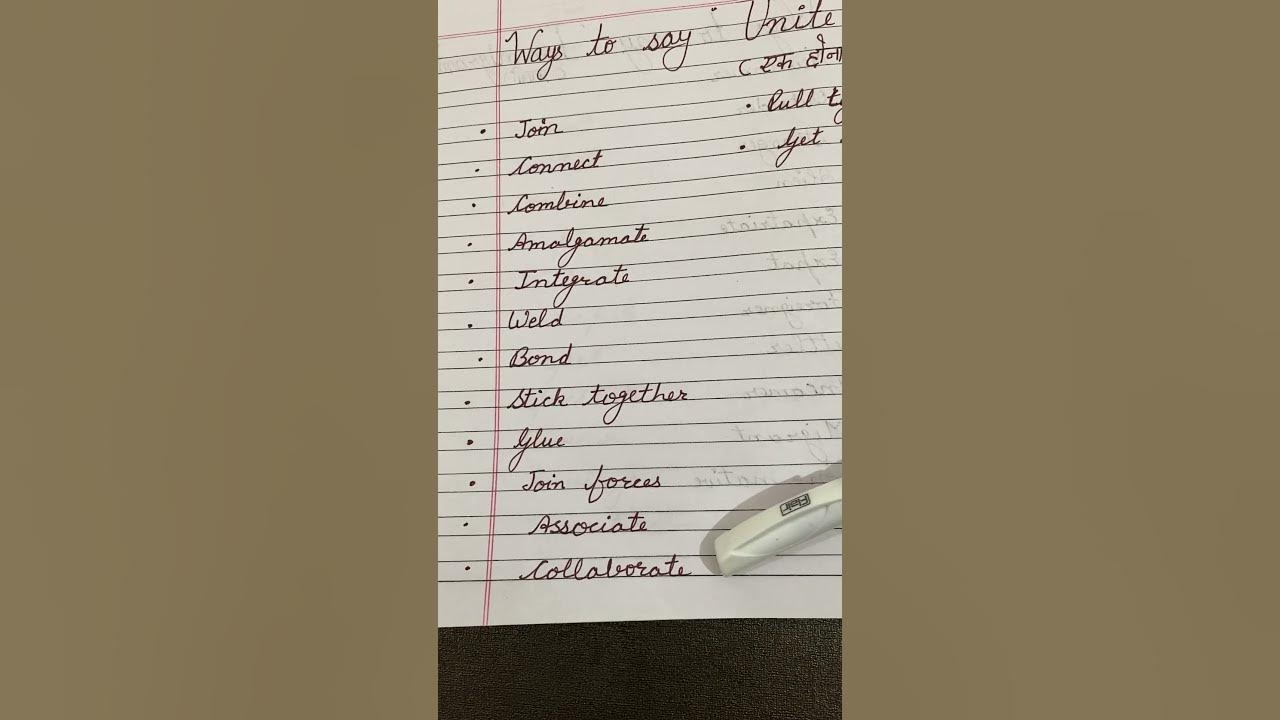 Ways to say "Unite
(एक होना
• Join
• Connect
• Combine
• Amalgamate
• Integrate
• Weld
• Bond
• Stick together
• Glue
• Join forces
• Associate
• Collaborate
• Pull
• Get